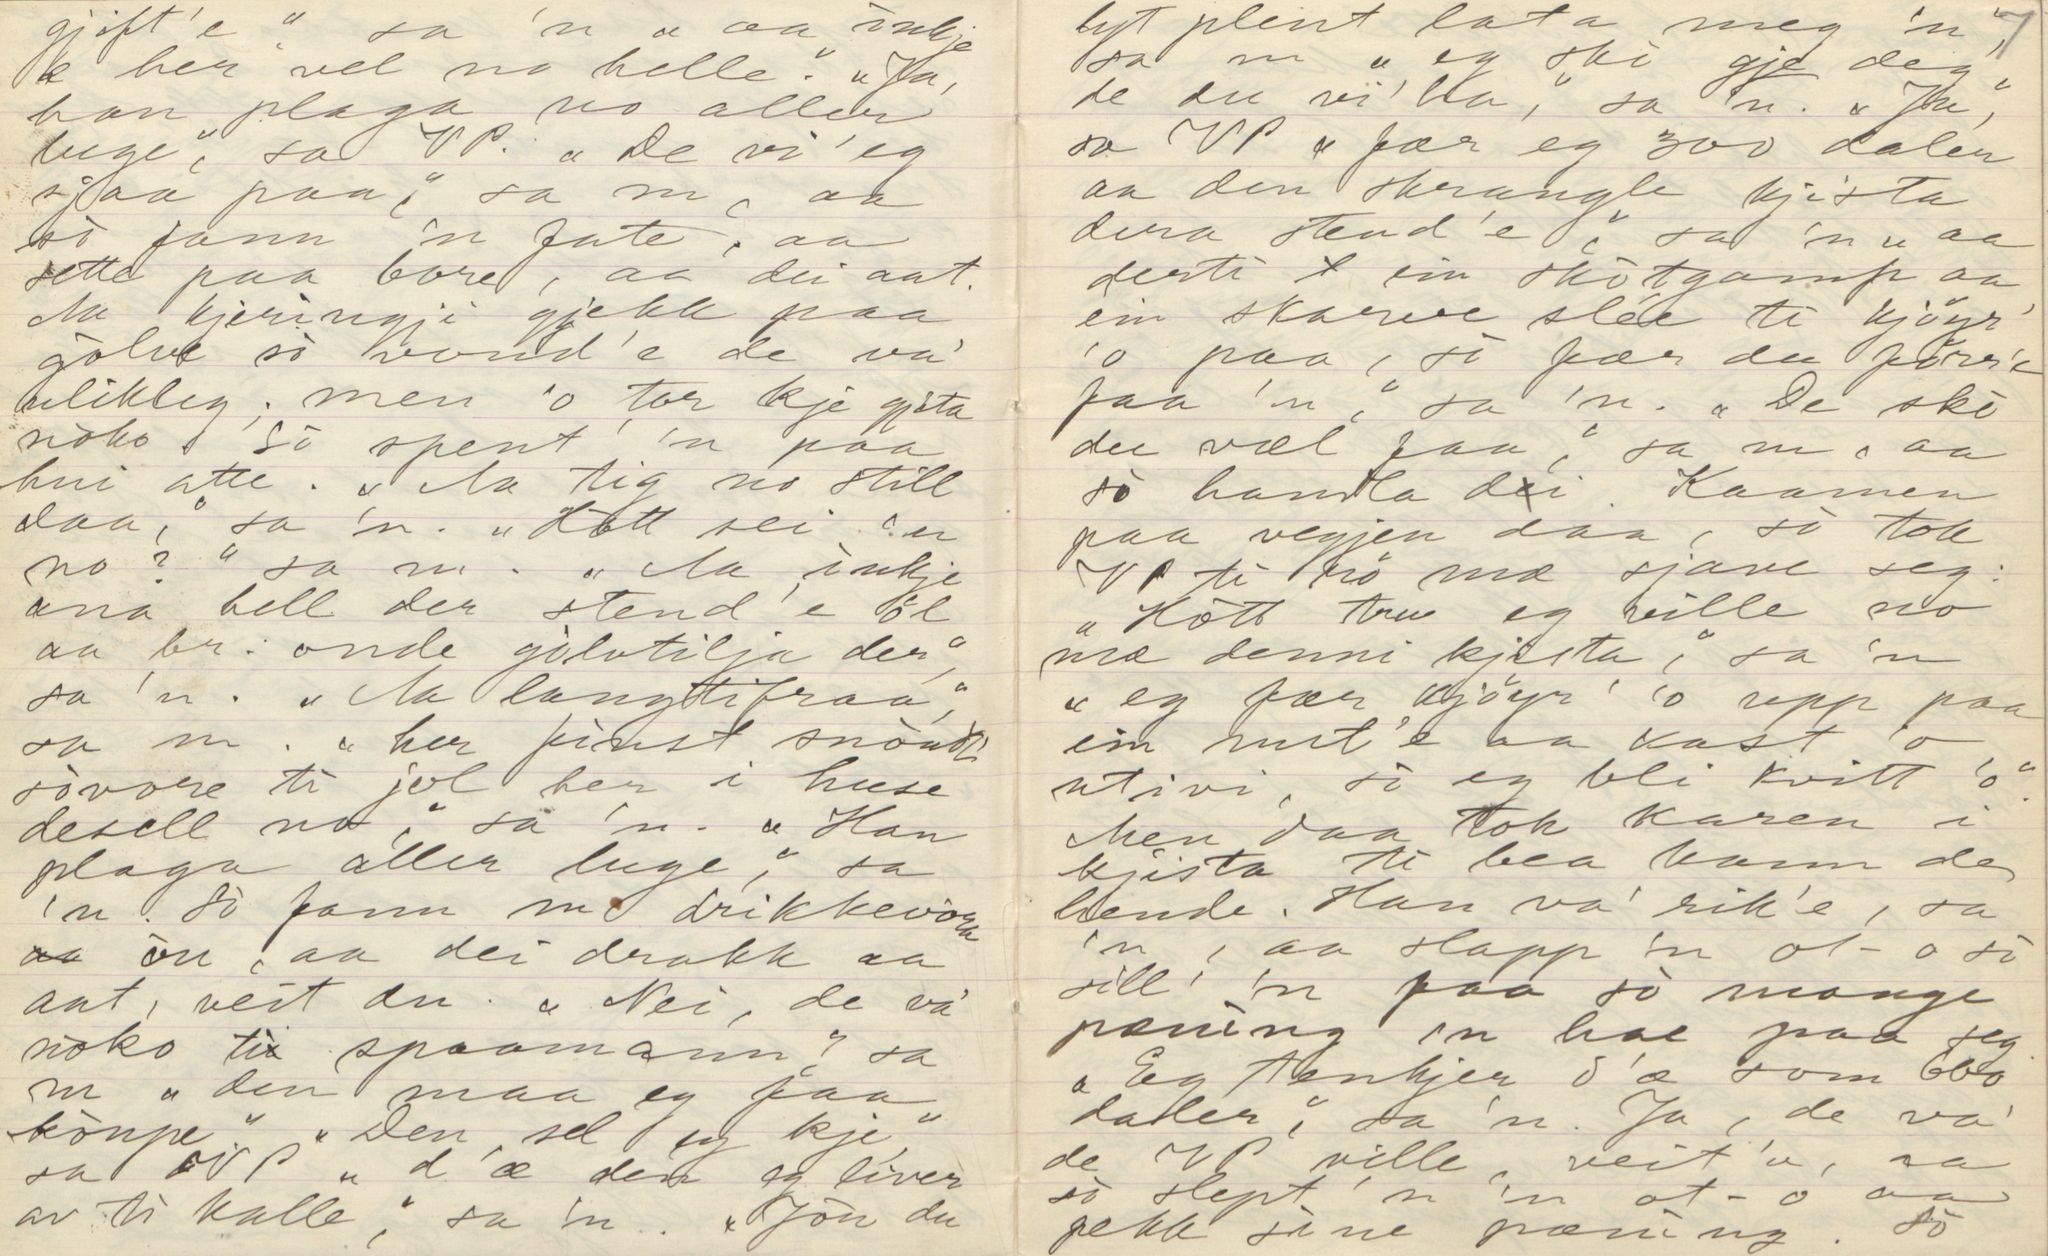 gjift'e" sa 'n „aa inkje
k her vel no helle". „Ja,
han plaga no aller
luge", sa VP. „De vi' eg
sjaa paa", sa m, aa
sò fann 'n fate, aa
sette paa bore, aa dei aat.
Aa kjeringji gjekk paa
gòlve sò vond'e de va'
ulikleg; men 'o tor kje gjeta
nòko. Sò spent 'n paa
hui atte. „Aa tig no still
daa," sa 'n. „Hòtt sei 'n
no?" sa m. „Aa inkje
ana hell der stend'e òl
aa br: onde gòlvtilja der",
sa 'n. „Aa langtifraa,"
sa m. „her finst snòudt
sòvore ti jol her i huse
desell no," sa 'n. „Han
plaga aller luge," sa
'n. Sò fann m drikkevòrk
òu, aa dei drakk aa
aat, veit du. „Nei, de va'
nòko ti spaamann", sa
m „den maa eg faa
kòupe". „Den sel eg kje",
sa VP „d'æ den eg liver
av ti kalle," sa 'n. „Jòu du
7
lyt plent lata meg 'n",
sa m „eg ski gje deg
de du vi' ha," sa 'n. „Ja",
sa VP „fær eg 300 daler
aa den skrangle kjista
dera stend'e," sa 'n „aa
derti ein skòtgamp aa
ein skarve slée ti kjöyr'
'o paa, sò fær du förr'e
faa 'n," sa 'n. „De ski
du væl faa," sa m, aa
sò handla dei. Kaamen
paa vegjen daa, sò tok
VP ti rö mæ sjave seg:
„Hòtt tru eg ville no
mæ denni kjista," sa 'n
„eg fær kjöyr' 'o upp paa
ein nut'e aa kast 'o
utivi, sò eg bli kvitt 'o".
Men daa tok karen i
kjista ti bea hann de
hende. Han va' rik'e, sa
'n, aa slapp 'n ot-o sò
sill' 'n faa sò mange
pæning 'n hae paa seg
„Eg tenkjer d'æ som 600
daler," sa 'n. Ja, de va'
de VP ville, veit'u, aa
sò slept 'n 'n ot-o aa
fekk sine pæning. Sò